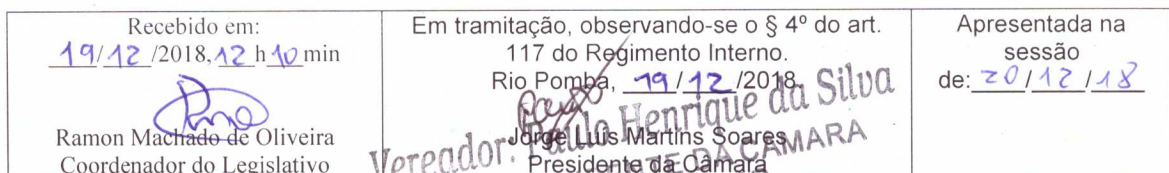 Recebido em:
19/12/2018, 12 h 10 min
Ramon Machado de Oliveira
Coordenador do Legislativo
Em tramitação, observando-se o § 4º do art.
117 do Regimento Interno.
Rio Pomba, 19/12/2018.
Jorge Luís Martins Soares
Presidente da Câmara
Vereador: Paulo Henrique da Silva
DA CÂMARA
Apresentada na
sessão
de: 20/12/18